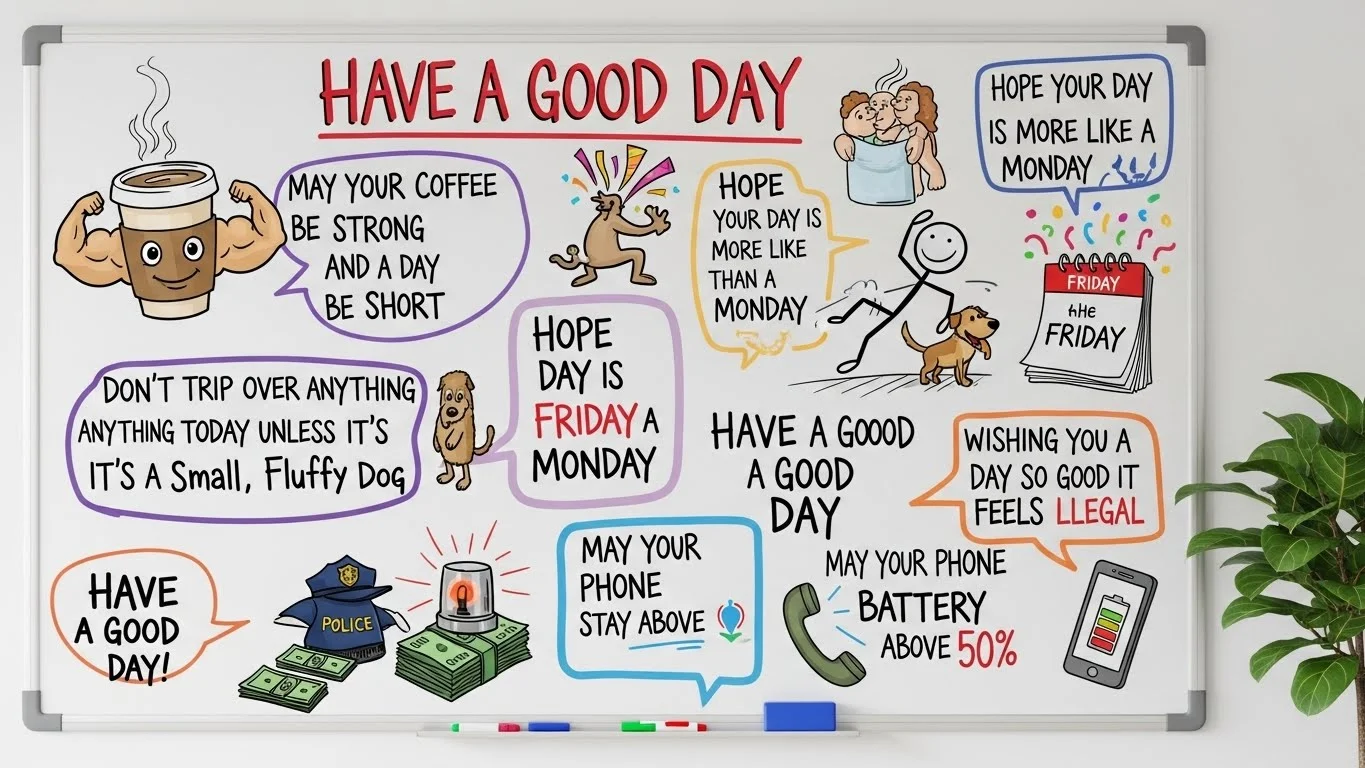 HAVE A GOOD DAY
MAY YOUR COFFEE
BE STRONG
AND A DAY
BE SHORT
HOPE
YOUR DAY IS
MORE LIKE
THAN A
MONDAY
HOPE YOUR DAY
IS MORE LIKE A
MONDAY
FRIDAY
FRIDAY
DON'T TRIP OVER ANYTHING
ANYTHING TODAY UNLESS IT'S
IT'S A Small, Fluffy Dog
HOPE
DAY IS
FRIDAY A
MONDAY
HAVE A GOOOD
A GOOD
DAY
WISHING YOU A
DAY SO GOOD IT
FEELS LLEGAL
HAVE
A GOOD
DAY!
POLICE
MAY YOUR
PHONE
STAY ABOVE
MAY YOUR PHONE
BATTERY
ABOVE 50%